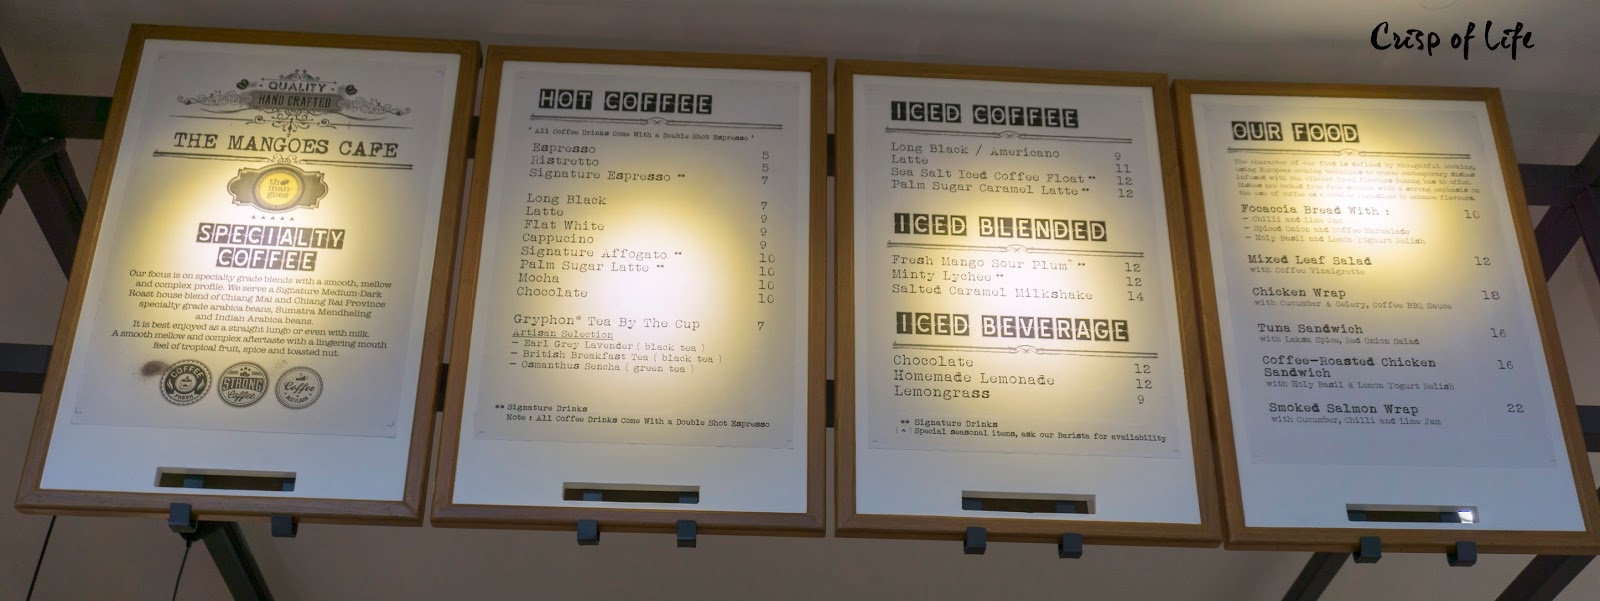 Crisp of Life
QUALITY
HAND CRAFTED
THE MANGOES CAFE
the
man-
goes
SPECIALTY
COFFEE
Our focus is on specialty grade blends with a smooth, mellow
and complex profile. We serve a Signature Medium-Dark
Roast house blend of Chiang Mai and Chiang Rai Province
specialty grade arabica beans, Sumatra Mendheling
and Indian Arabica beans.
It is best enjoyed as a straight lungo or even with milk.
A smooth mellow and complex aftertaste with a lingering mouth
feel of tropical fruit, spice and toasted nut.
COFFEE
STRONG
Coffee
Coffee
HOT COFFEE
'All Coffee Drinks Come With a Double Shot Espresso'
Espresso 5
Ristretto 5
Signature Espresso ** 7
Long Black 7
Latte 9
Flat White 9
Cappucino 9
Signature Affogato ** 10
Palm Sugar Latte ** 10
Mocha 10
Chocolate 10
Gryphon® Tea By The Cup 7
Artisan Selection
– Earl Grey Lavender ( black tea )
– British Breakfast Tea ( black tea )
– Osmanthus Sencha ( green tea )
** Signature Drinks
Note : All Coffee Drinks Come With a Double Shot Espresso
ICED COFFEE
Long Black / Americano 9
Latte 11
Sea Salt Iced Coffee Float ** 12
Palm Sugar Caramel Latte ** 12
ICED BLENDED
Fresh Mango Sour Plum^ ** 12
Minty Lychee ** 12
Salted Caramel Milkshake 14
ICED BEVERAGE
Chocolate 12
Homemade Lemonade 12
Lemongrass 9
** Signature Drinks
(^) Special seasonal items, ask our Barista for availability
OUR FOOD
The character of our food is defined by thoughtful cooking,
using European cooking techniques to create contemporary dishes
infused with the vibrant local flavours Penang has to offer.
Dishes are cooked from scratch with a strong emphasis on
the use of coffee as a to enhance flavours.
Focaccia Bread With : 10
– Chilli and Lime Jam
– Spiced Onion and Coffee Marmalade
– Holy Basil and Lemon Yoghurt Relish
Mixed Leaf Salad 12
with Coffee Vinaigrette
Chicken Wrap 18
with Cucumber & Celery, Coffee BBQ Sauce
Tuna Sandwich 16
with Laksa Spice, Red Onion Salad
Coffee-Roasted Chicken
Sandwich 16
with Holy Basil & Lemon Yogurt Relish
Smoked Salmon Wrap 22
with Cucumber, Chilli and Lime Jam